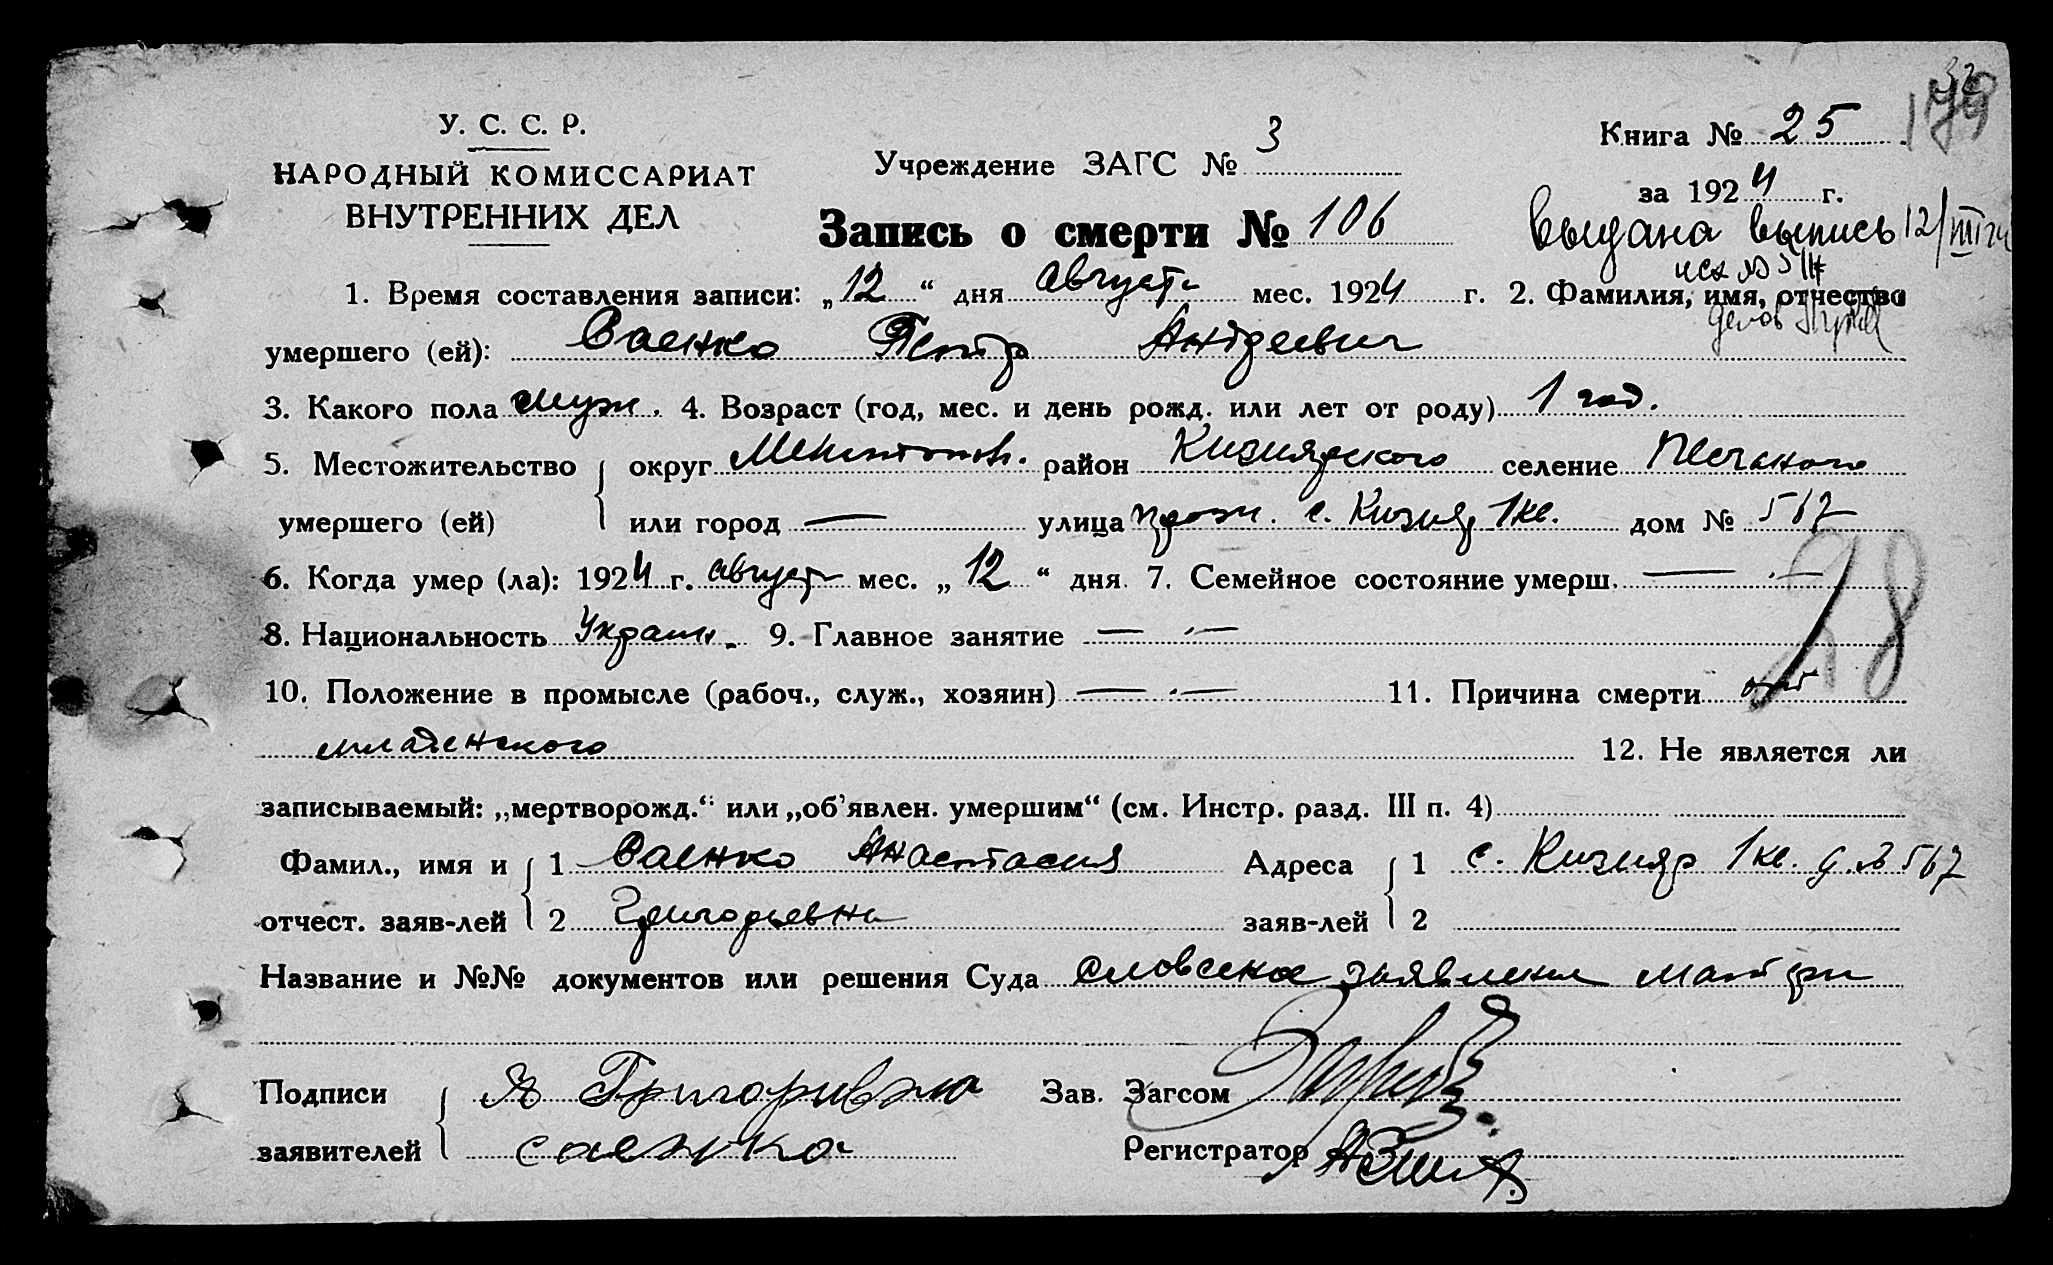 У. С. С. Р.
НАРОДНЫЙ КОМИССАРИАТ
ВНУТРЕННИХ ДЕЛ
Учреждение ЗАГС № 3
Книга № 25
за 1924 г.
Запись о смерти № 106
Выдана выпись 12/III
1. Время составления записи: „12“ дня август мес. 1924 г. 2. Фамилия, имя, отчество
умершего (ей): Саенко Петр Андреевич
3. Какого пола муж. 4. Возраст (год, мес. и день рожд. или лет от роду) 1 год.
5. Местожительство округ Мелитопов. район Кизиярского селение Песчаного
умершего (ей) или город — улица прож. с. Кизияр 1 кв. дом № 567
6. Когда умер (ла): 1924 г. август мес. „12“ дня. 7. Семейное состояние умерш. — . —
8. Национальность Украин. 9. Главное занятие — . —
28
10. Положение в промысле (рабоч., служ., хозяин) — . — 11. Причина смерти от
младенского 12. Не является ли
записываемый: „мертворожд.“ или „об'явлен. умершим“ (см. Инстр. разд. III п. 4)
Фамил., имя и 1 Саенко Анастасия Адреса 1 с. Кизияр 1 кв. д. № 567
отчест. заяв-лей 2 Григорьевна заяв-лей 2
Название и №№ документов или решения Суда словесное заявление матери
Подписи Григоривна Зав. Загсом
заявителей саенка Регистратор